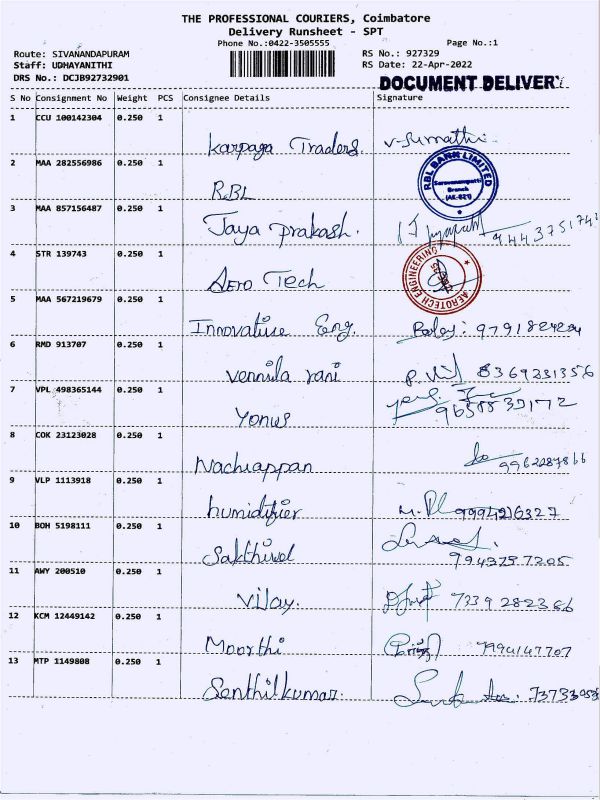 THE PROFESSIONAL COURIERS, Coimbatore
Delivery Runsheet - SPT
Phone No.:0422-3505555 Page No.:1
Route: SIVANANDAPURAM RS No.: 927329
Staff: UDHAYANITHI RS Date: 22-Apr-2022
DRS No.: DCJB92732901 DOCUMENT DELIVERY
S No Consignment No Weight PCS Consignee Details Signature
1 CCU 100142304 0.250 1
Karpaga Traders. V-Sumathi.
2 MAA 282556986 0.250 1
RBL
RBL BANK LIMITED
Saravanampatti
Branch
3 MAA 857156487 0.250 1
Jaya prakash.
4 STR 139743 0.250 1
Aero Tech
AEROTECH ENGINEERING
5 MAA 567219679 0.250 1
Innovative Eng.
6 RMD 913707 0.250 1
Vennila rani 8369231356
7 VPL 498365144 0.250 1
Yonus
8 COK 23123028 0.250 1
Nachiappan
9 VLP 1113918 0.250 1
humidifier 9994216327
10 BOH 5198111 0.250 1
Sakthivel
11 AWY 200510 0.250 1
Vijay. 7339282366
12 KCM 12449142 0.250 1
Moorthi 7994147707
13 MTP 1149808 0.250 1
Senthilkumar.